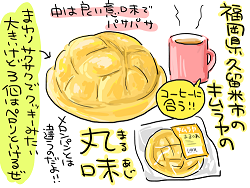 福岡県久留米市の
キムラヤの
丸味
まるあじ
コーヒーに
合う!!
中は良い意味で
パサパサ
まわりサクサクでクッキーみたい
大きいけど3個はペロンといけるぜ
メロンパンとは
違うのだよ…